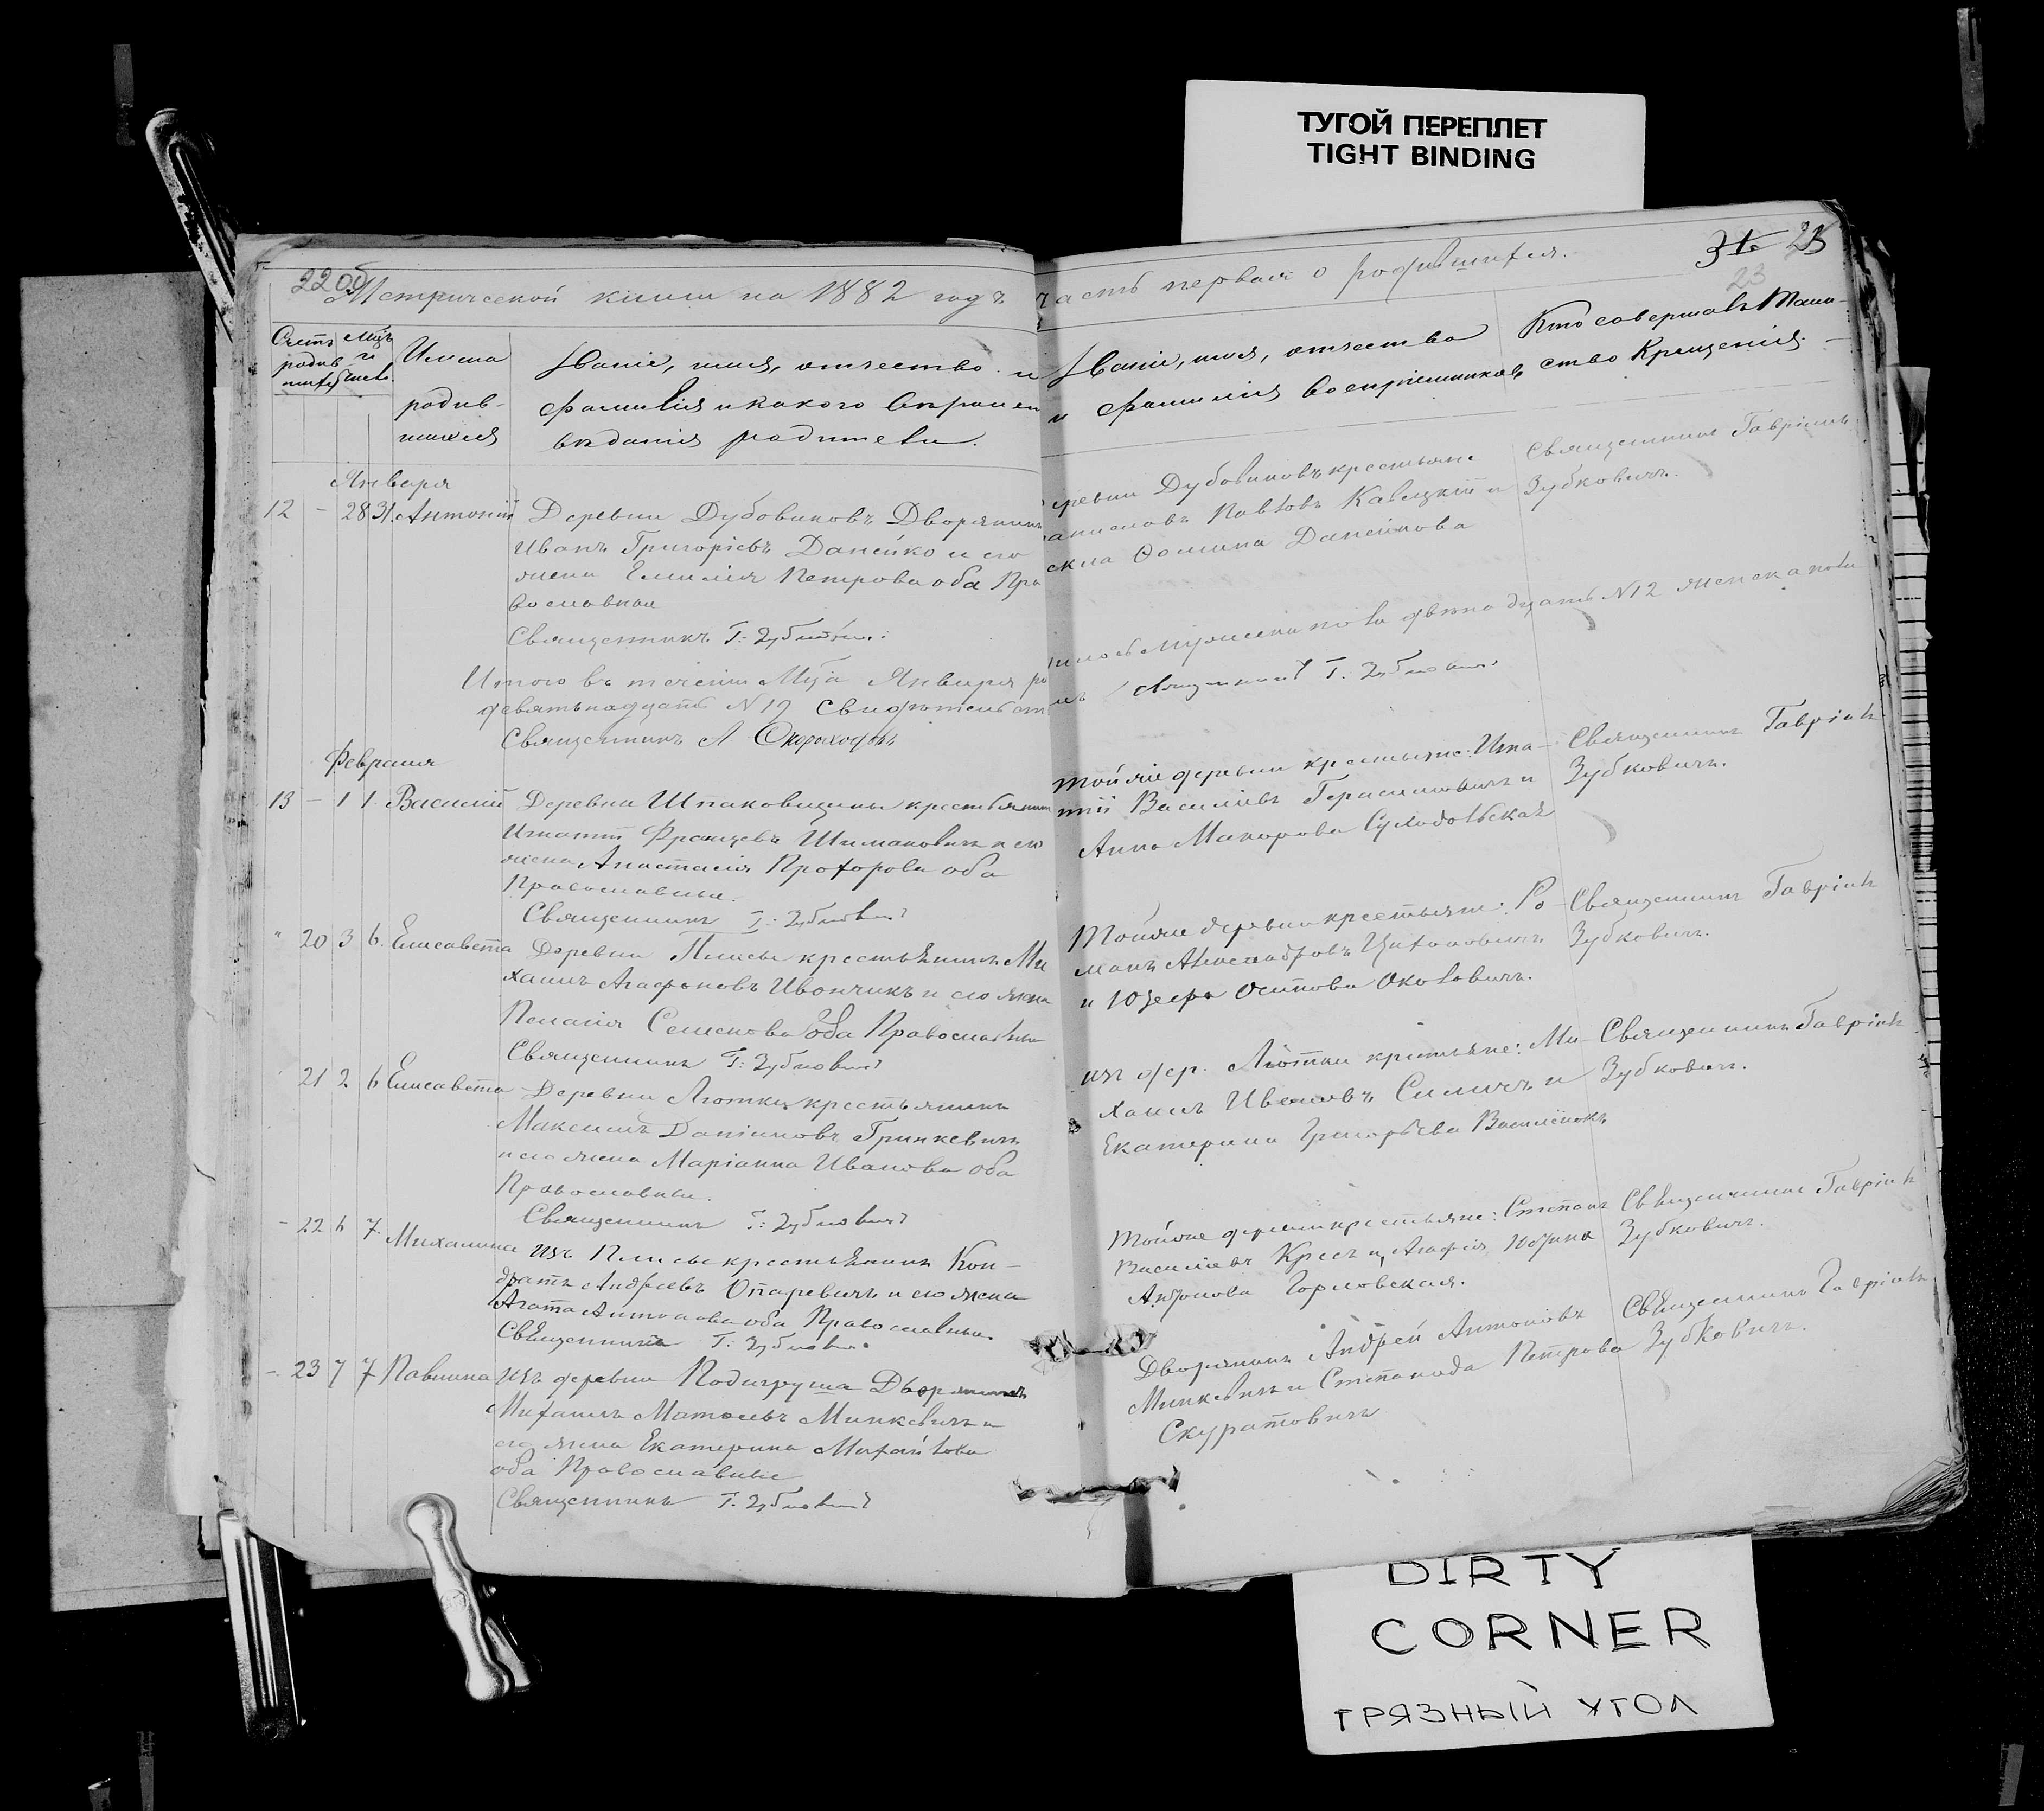 ТУГОЙ ПЕРЕПЛЕТ
TIGHT BINDING
22 об
Метрической книги на 1882 годъ
Счетъ родив-шихся
Мцъ и число
Имена родив-шихся
Званіе, имя, отчество и
фамилія и какого вѣроиспо
вѣданія родители.
Января
12 - 28 31 Антоній
Деревни Дубовиковъ Дворянинъ
Иванъ Григоріевъ Данейко и его
жена Емилія Петрова оба Пра
вославные
Священникъ Г. Зубковичъ
Итого въ теченіи Мца Января ро
девятьнадцать N 19 Свидѣтельст
Священникъ Л Скороходовъ
Февраля
13 - 1 1 Василій
Деревни Шпаковщины крестьянинъ
Игнатій Францевъ Шиманович и его
жена Анастасія Прохорова оба
Православные.
Священникъ Г. Зубковичъ
" 20 3 6. Елисавета
Деревни Плисы крестьянинъ Ми
хаилъ Агафоновъ Ивончикъ и его жена
Пелагія Семенова оба Православные
Священникъ Г. Зубковичъ
21 2 6 Елисавета
Деревни Лютки крестьянинъ
Максимъ Даніиловъ Гринкевичъ
и его жена Маріанна Иванова оба
Православные.
Священникъ Г. Зубковичъ
- 22 6 7. Михалина
Изъ Плисы крестьянинъ Кон-
дратъ Андреевъ Опаревичъ и его жена
Агата Антонова оба Православные.
Священникъ Г. Зубковичъ
- 23 7 7 Павлина
Изъ деревни Подигруша Дворянинъ
Михаилъ Матвеевъ Минкевичъ и
его жена Екатерина Михайлова
оба Православные
Священникъ Г. Зубковичъ
часть первая о родившихся.
23
23
Званіе, имя, отчество
и фамилія воспріемниковъ
Кто совершалъ Таин-
ство Крещенія.
Деревни Дубовиковъ крестьяне
Павловъ Кавецкій и
Фомина Данейкова
Священникъ Гавріилъ
Зубковичъ.
мужеска пола двенадцать N 12 женска пола
Священникъ Г. Зубковичъ
Той же деревни крестьяне: Игна-
тій Василіевъ Герасимовичъ и
Анна Макарова Суходольская
Священникъ Гавріилъ
Зубковичъ.
Той же деревни крестьяне: Ро-
манъ Александровъ Цитовичъ
и Юзефа Осипова Околовичъ.
Священникъ Гавріилъ
Зубковичъ.
Изъ дер. Лютки крестьяне: Ми-
хаилъ Ивановъ Силичъ и
Екатерина Григорьева Василёнокъ
Священникъ Гавріилъ
Зубковичъ.
Той же деревни крестьяне: Степанъ
Василіевъ Кресъ и Агафія
Антонова Горловская.
Священникъ Гавріилъ
Зубковичъ.
Дворянинъ Андрей Антоновъ
Минкевичъ и Степанида Петрова
Скуратовичъ
Священникъ Гавріилъ
Зубковичъ.
DIRTY
CORNER
ГРЯЗНЫЙ УГОЛ